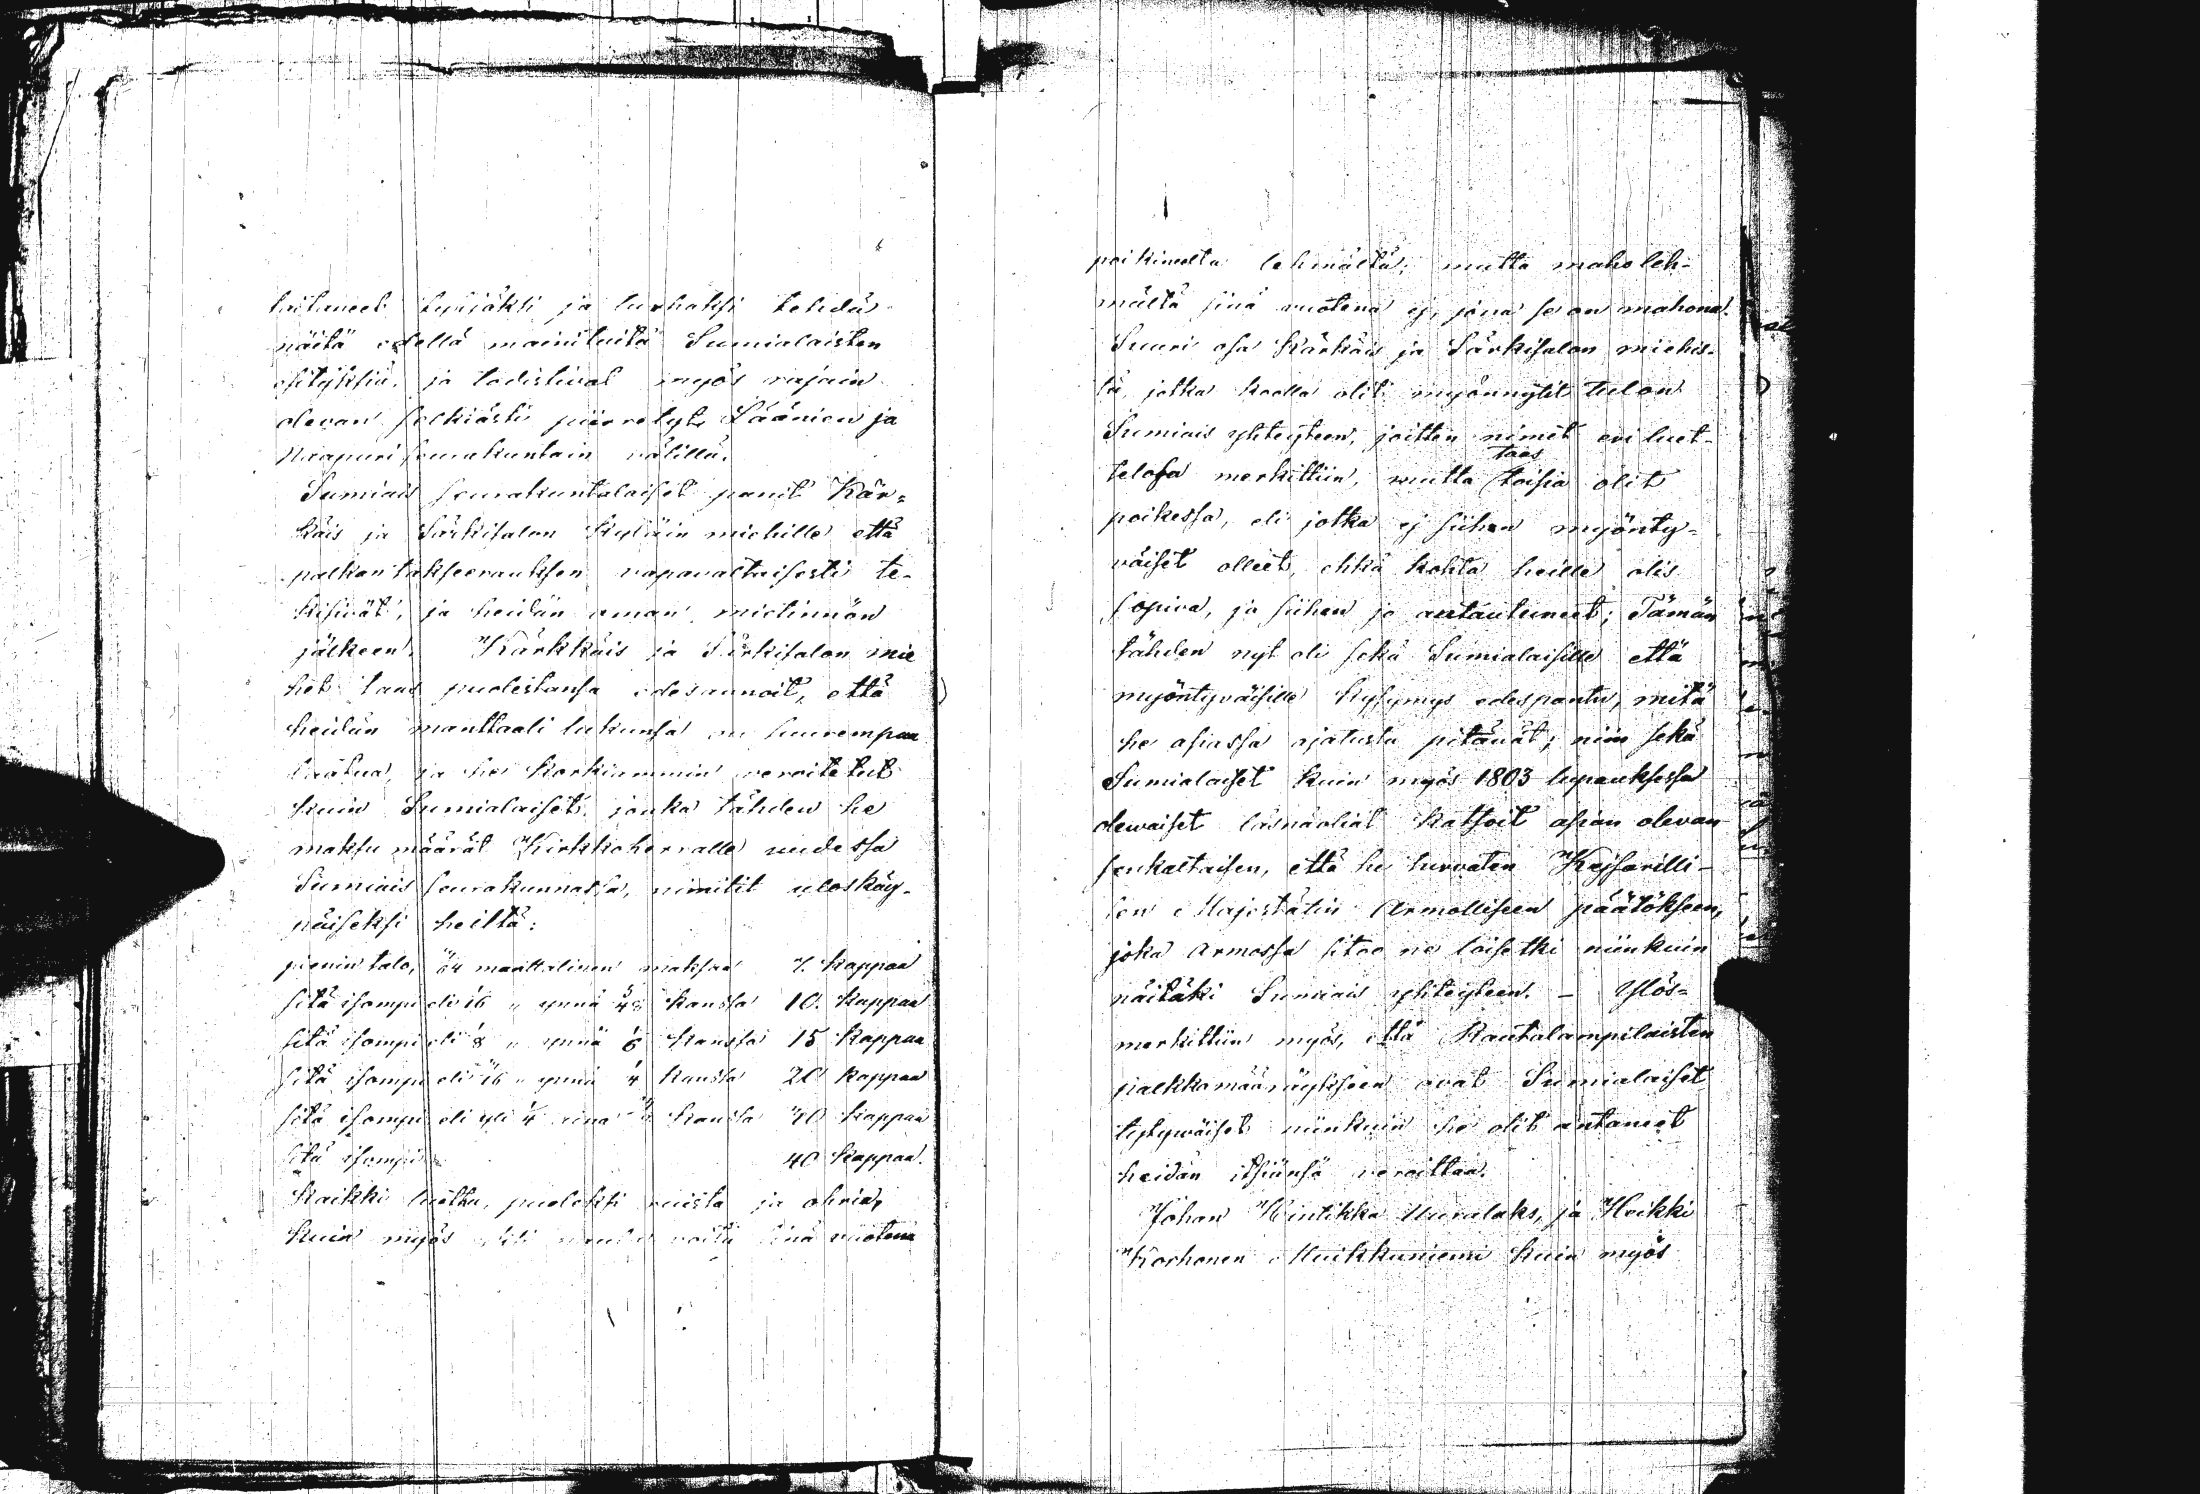 tyhjäksi ja turhaksi tehdä
näitä edellä mainituita Sumialaisten
esityksiä, ja todistivat myös rajain
olevan selkiästi piirretyt Läänien ja
Naapuri seurakuntain välillä.
Sumiais seurakuntalaiset panit Kär-
käis ja Särkisalon Kyläin miehille että
palkan takseerauksen vapavaltaisesti te-
kisivät, ja heidän aman mielinnön
jälkeen. Kärkkäis ja Särkisalon mie
het taas puolestansa edesannoit, että
heidän manttaali lukunsa on suurempaa
laatua, ja he korkiammin veroitetut
kuin Sumialaiset, jonka tähden he
maksu määrät Kirkkoherralle uudessa
Sumiais seurakunnassa, nimitit uloskäy-
päiseksi heiltä:
pienin talo, manttalinen maksaa 7. kappaa
sitä isompi eli 1/16 " ynnä kanssa 10. kappaa
sitä isompi eli 1/8 " ynnä 1/6 kanssa 15 kappaa
sitä isompi eli " ynnä 1/4 kanssa 20 kappaa
sitä isompi eli yli 1/4 kanssa kappaa
sitä isompi 40 kappaa.
Kaikki luettu, puoleksi ruista ja ohria,
kuin myös voita sinä vuotena
poikineelta lehmältä; mutta maho leh-
mältä sinä vuotena ej, jona se on mahona.
Suuri osa Kärkäis ja Särkisalon miehis-
tä, jotka koolla olit myönnytit tulon
Sumiais yhteyteen, joitten nimet eri luet-
taas
telosa merkittiin, mutta toisia olit
poikessa, eli jotka ej siihen myönty-
väiset olleet, ehkä kohta heille olis
sopiva, ja siihen jo antautuneet; Tämän
tähden nyt oli sekä Sumialaisille että
myöntyväisille kysymys edespantu, mitä
he asiassa ajatusta pitävät; niin sekä
Sumialaiset kuin myös 1803 lupauksessa
olewaiset läsnäoliat katsoit asian olevan
senkaltaisen, että he turvaten Kejsarilli-
sen Majestätin Armolliseen päätökseen,
joka Armossa sitoo ne toisetki niinkuin
näitäki Sumiais yhteyteen. – Ylös-
merkittiin myös, että Rautalampilaisten
palkkamääräykseen ovat Sumialaiset
tytywäiset niinkuin he olit antaneet
heidän itsiänsä veroittaa.
Johan Hintikka Uuralaks, ja Heikki
Korhonen Muikkuniemi kuin myös